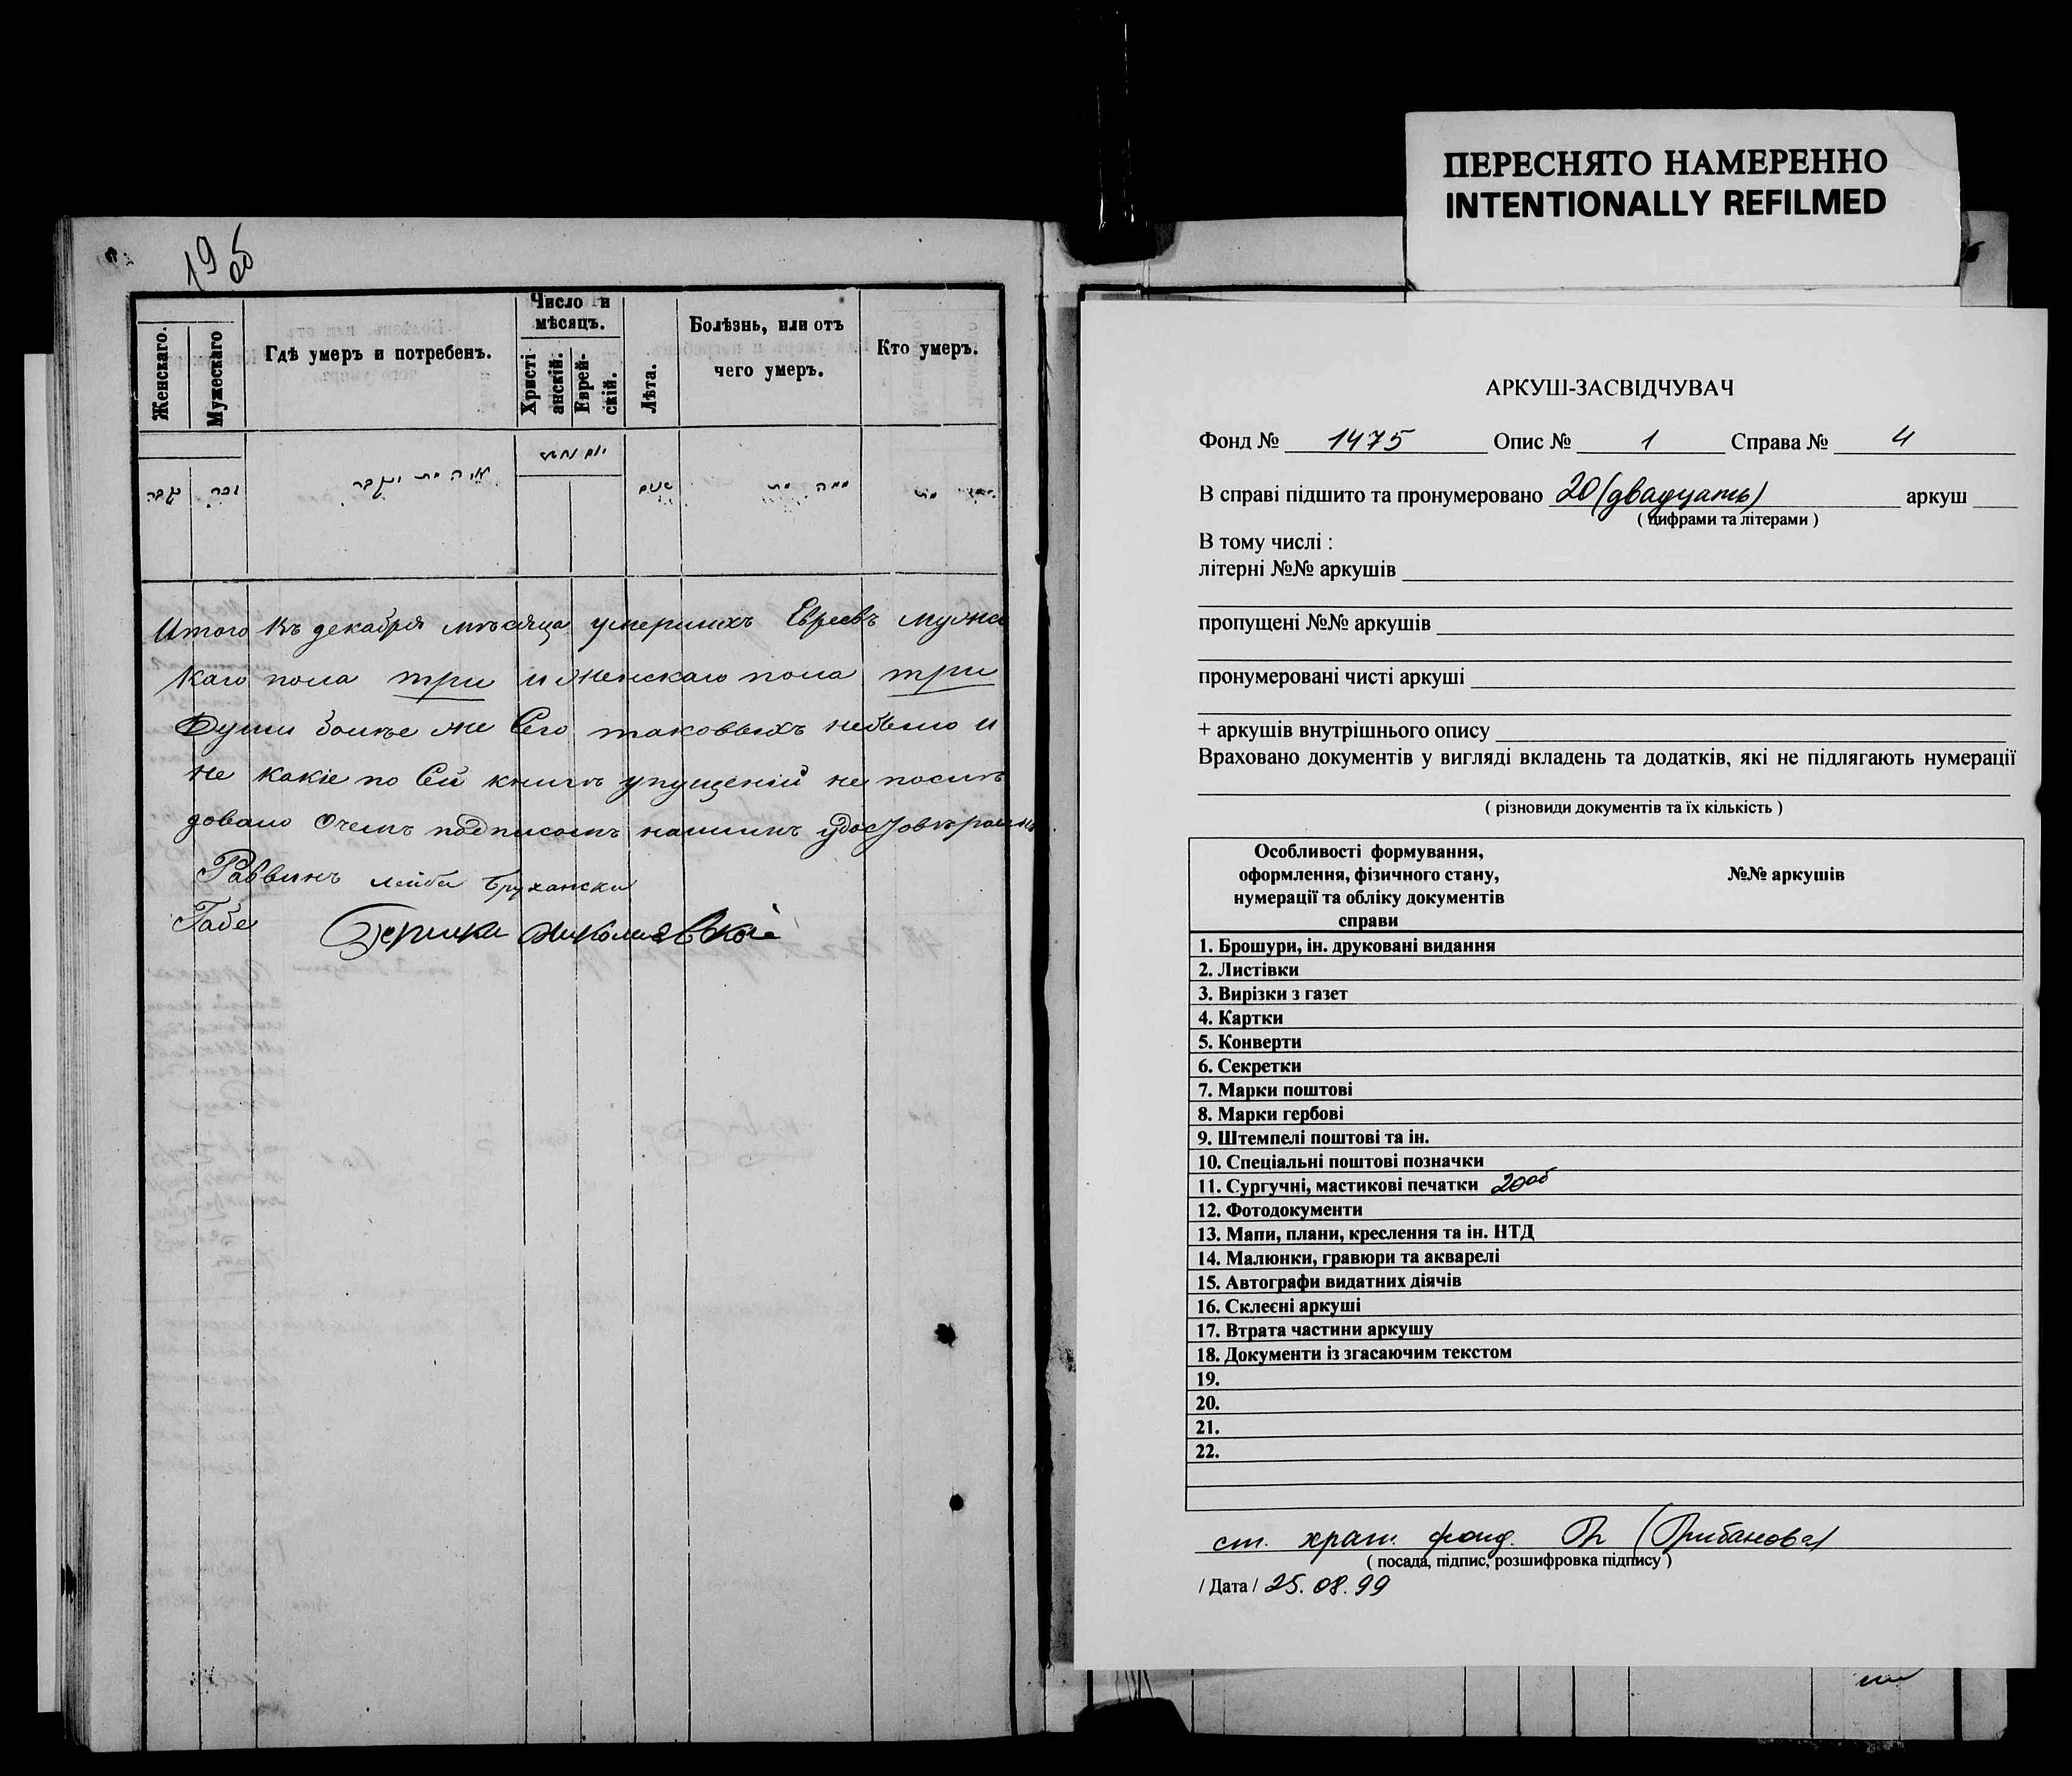 19 об
Женскаго.
Мужескаго
Гдѣ умеръ и потребенъ.
Число и
мѣсяцъ.
Христі-
анскій.
Еврей-
скій.
Лѣта.
Болѣзнь, или отъ
чего умеръ.
Кто умеръ.
Итого въ декабрѣ мѣсяца умершихъ Евреевъ мужс
каго пола три и женскаго пола три
Души болѣе же Сего таковыхъ небыло и
не какіе по Сей книгѣ упущеній не послѣ
довало Очемъ подписомъ нашимъ удостовѣряемъ
Раввинъ Лейба Брухански
Габе
ПЕРЕСНЯТО НАМЕРЕННО
INTENTIONALLY REFILMED
АРКУШ-ЗАСВІДЧУВАЧ
Фонд № 1475 Опис № 1 Справа № 4
В справі підшито та пронумеровано 20 (двадцать) аркуш
( цифрами та літерами )
В тому числі :
літерні №№ аркушів
пропущені №№ аркушів
пронумеровані чисті аркуші
+ аркушів внутрішнього опису
Враховано документів у вигляді вкладень та додатків, які не підлягають нумерації
( різновиди документів та їх кількість )
Особливості формування,
оформлення, фізичного стану,
нумерації та обліку документів
справи
№№ аркушів
1. Брошури, ін. друковані видання
2. Листівки
3. Вирізки з газет
4. Картки
5. Конверти
6. Секретки
7. Марки поштові
8. Марки гербові
9. Штемпелі поштові та ін.
10. Спеціальні поштові позначки
11. Сургучні, мастикові печатки 20об
12. Фотодокументи
13. Мапи, плани, креслення та ін. НТД
14. Малюнки, гравюри та акварелі
15. Автографи видатних діячів
16. Склеєні аркуші
17. Втрата частини аркушу
18. Документи із згасаючим текстом
19.
20.
21.
22.
ст. хран. фонд. (Грибанова)
( посада, підпис, розшифровка підпису )
/ Дата / 25. 08. 99